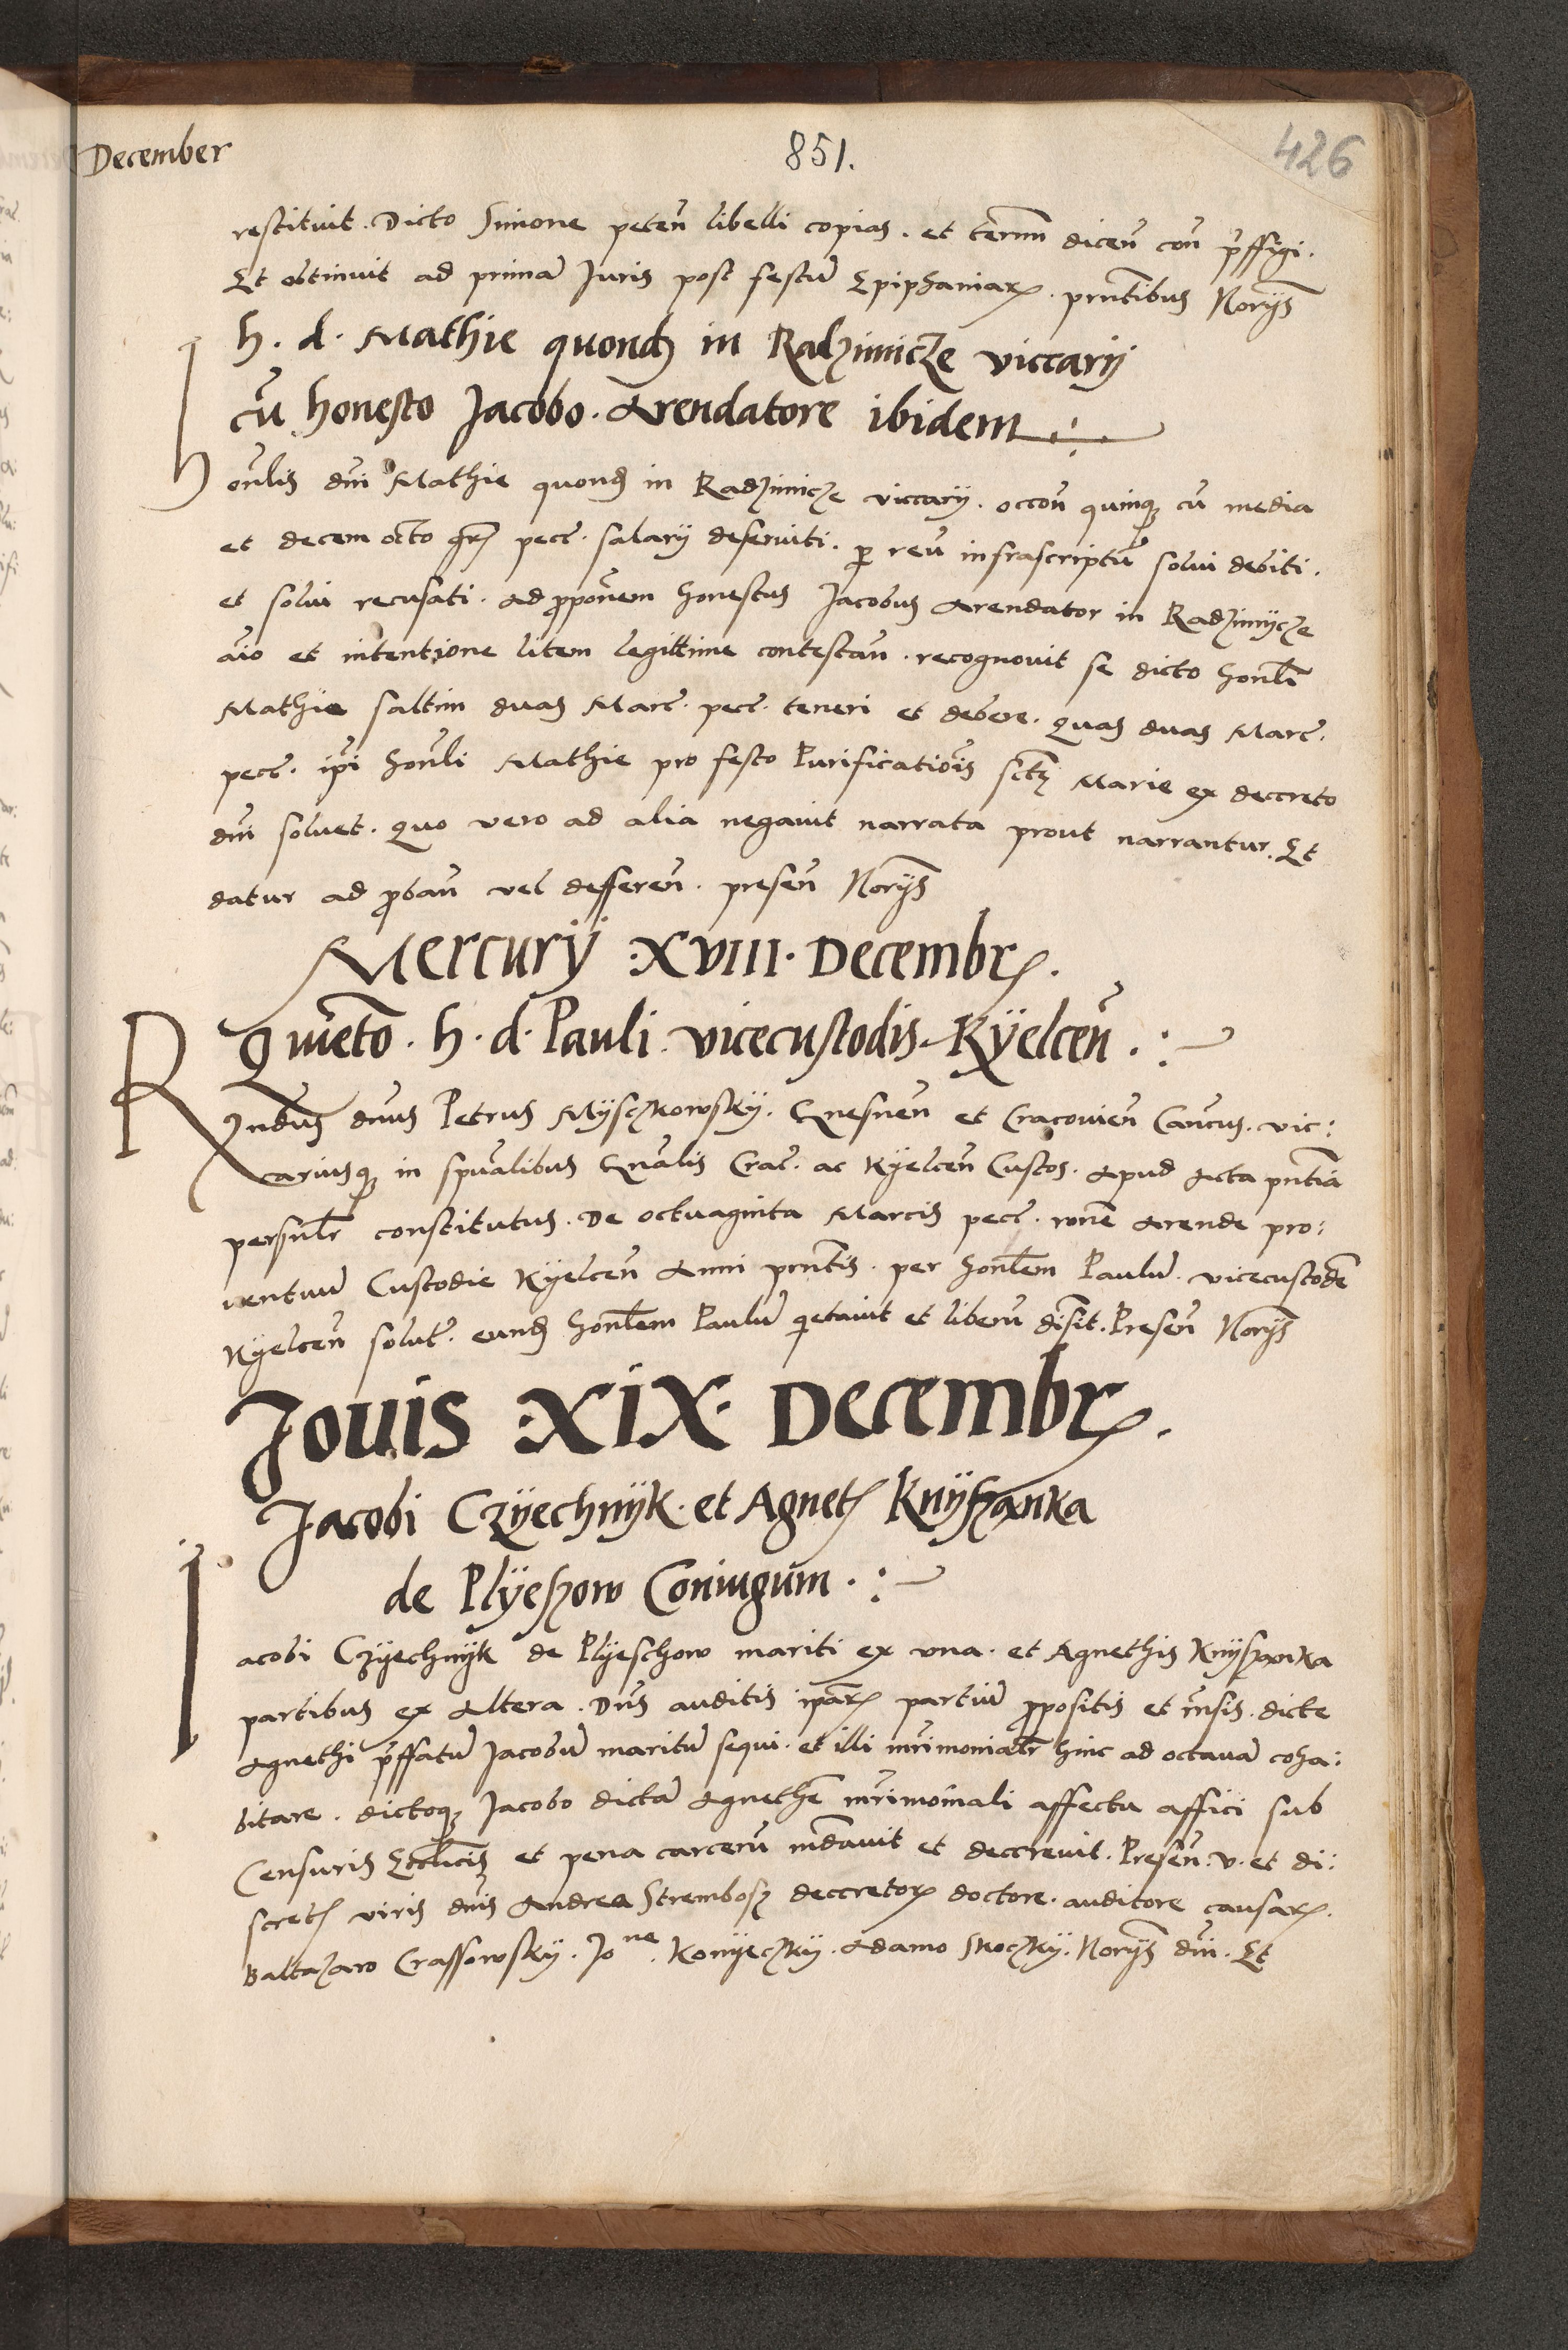 December
851.
426
restituit. Dicto Simone peteñ libelli copias. et termm̃ diceñ coñ p̃ffigi.
Et obtinuit ad primã Juris post festũ Epiphaniaꝝ. pñtibus Norijs
h. d. Mathie quondꝫ in Radzimicze viccarij
cũ honesto Jacobo. Arendatore ibidem
honlis dñi Mathie quondꝫ in Radzimicze viccarij. occoñ quinqꝫ cũ media
et decem octo gr̃ pecc̃. salarij deserviti. ꝑ reũ infrascriptũ solui debiti.
et solui recusati. ad ꝓpoñem honestus Jacobus Arendator in Radzimijcze
aĩo et intentione litem legittime contestañ. recognouit se dicto honlĩ
Mathie saltim duas Marc̃. pecc̃. teneri et debere. quas duas Marc̃.
pecc̃. ip̃i honlĩ Mathie pro festo Purificatiõis sctẽ Marie ex decreto
dñi soluet. quo vero ad alia negauit narrata prout narrantur. Et
datur ad ꝓbañ vel defferen̄. preseñ Norijs
Mercurij XVIII. Decembrꝭ.
Qwieto. h. d. Pauli vicecustodis Kÿelceñ.
Rndus dñus Petrus Mÿsczkowskÿ. Gnesneñ et Cracouieñ Cancus. vic:
cariusqꝫ in spũalibus Gñalis Crac̃. ac Kÿelceñ Custos. Apud Acta pñtia
persnlr̃ constitutus. De octuaginta Marcis pecc̃. rõne Arende pro:
uentuum Custodie Kÿelceñ Anni pñtis. per honlẽm Paulũ. vicecustodẽ
Kÿelceñ solut̃. eundꝫ honlẽm Paulũ q̃etauit et liberũ dĩsit. Preseñ Norijs
Jouis XIX. Decembrꝭ.
Jacobi Czÿechnÿk. et Agnetꝭ Knÿszanka
de Plÿeszow Coniugum.
Jacobi Czÿechnÿk de Plÿeschow mariti ex vna. et Agnethis Knÿszanka
partibus ex Altera. Dñs auditis ip̃aꝝ partiũ ꝓpositis et r̃nsis. dicte
Agnethi p̃ffatũ Jacobũ maritũ sequi. et illi mr̃imonialr̃ hinc ad octauã coha:
bitare. dictoqꝫ Jacobo dictã Agnethẽ mr̃imoniali affectu affici sub
Censuris Eccl̃icis et pena carcerũ mãdauit et decreuit. Preseñ. v. et di:
scretꝭ viris dñis Andrea Strembosz decretoꝝ doctore. auditore causaꝝ.
Baltazaro Crassowskÿ. Joⁿᵉ. Konÿeczkÿ. Adamo Skoczkÿ. Norijs dñi. Et